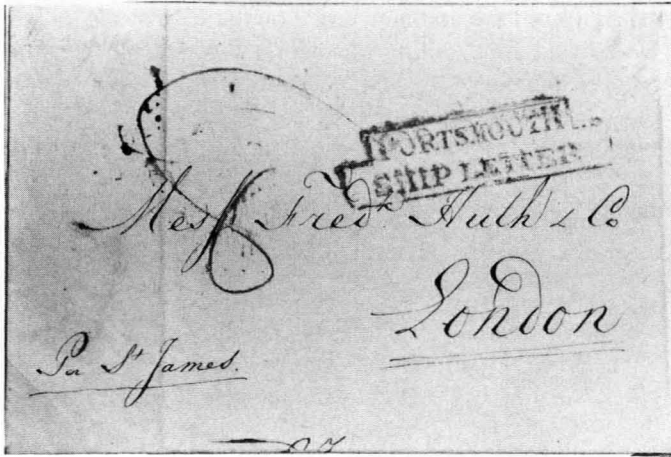 PORTSMOUTH
SHIP LETTER
Messrs Fredk Huth & Co
London
Pr St James.